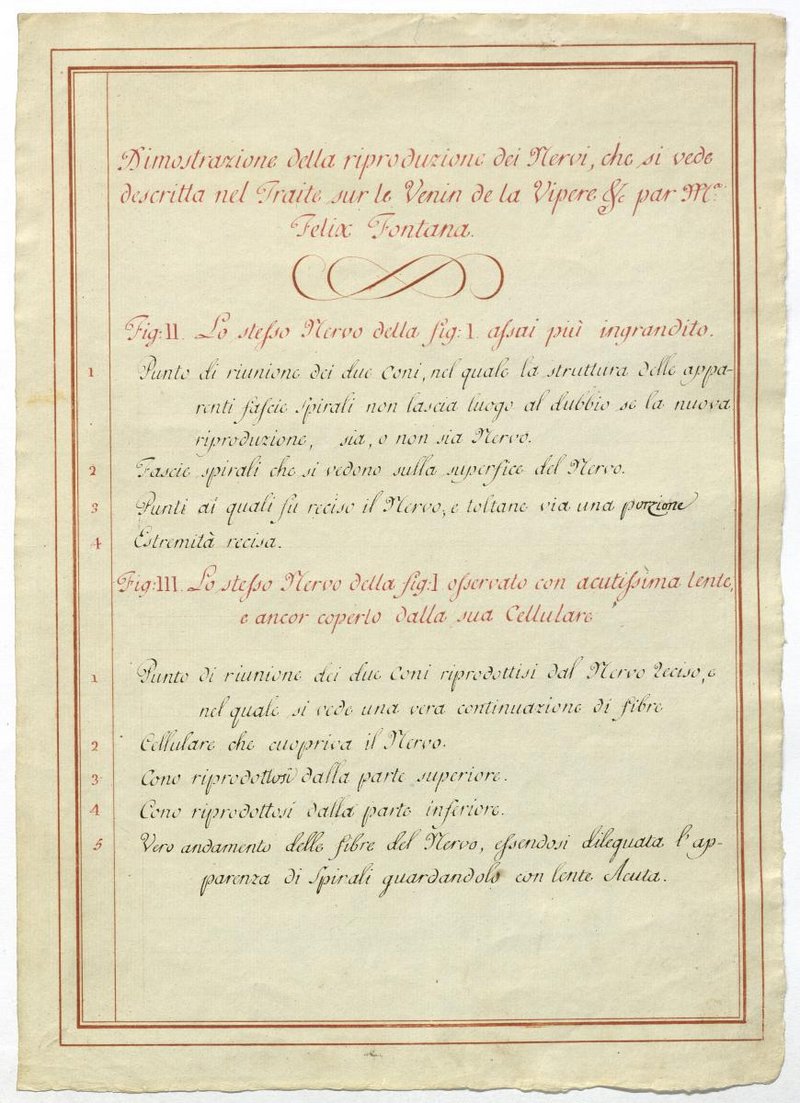 Dimostrazione della riproduzione dei Nervi, che si vede
descritta nel Traite sur le Venin de la Vipere &c par Mr
Felix Fontana.
Fig: II. Lo stesso Nervo della fig: I. assai più ingrandito.
1 Punto di riunione dei due Coni, nel quale la struttura delle appa-
renti fascie spirali non lascia luogo al dubbio se la nuova
riproduzione, sia, o non sia Nervo.
2 Fascie spirali che si vedono sulla superfice del Nervo.
3 Punti ai quali fu reciso il Nervo, e toltane via una porzione
4 Estremità recisa.
Fig: III. Lo stesso Nervo della fig: I osservato con acutissima lente,
e ancor coperto dalla sua Cellulare
1 Punto di riunione dei due Coni riprodottisi dal Nervo reciso, e
nel quale si vede una vera continuazione di fibre
2 Cellulare che cuopriva il Nervo.
3 Cono riprodottosi dalla parte superiore.
4 Cono riprodottosi dalla parte inferiore.
5 Vero andamento delle fibre del Nervo, essendosi dileguata l'ap-
parenza di Spirali guardandolo con lente Acuta.